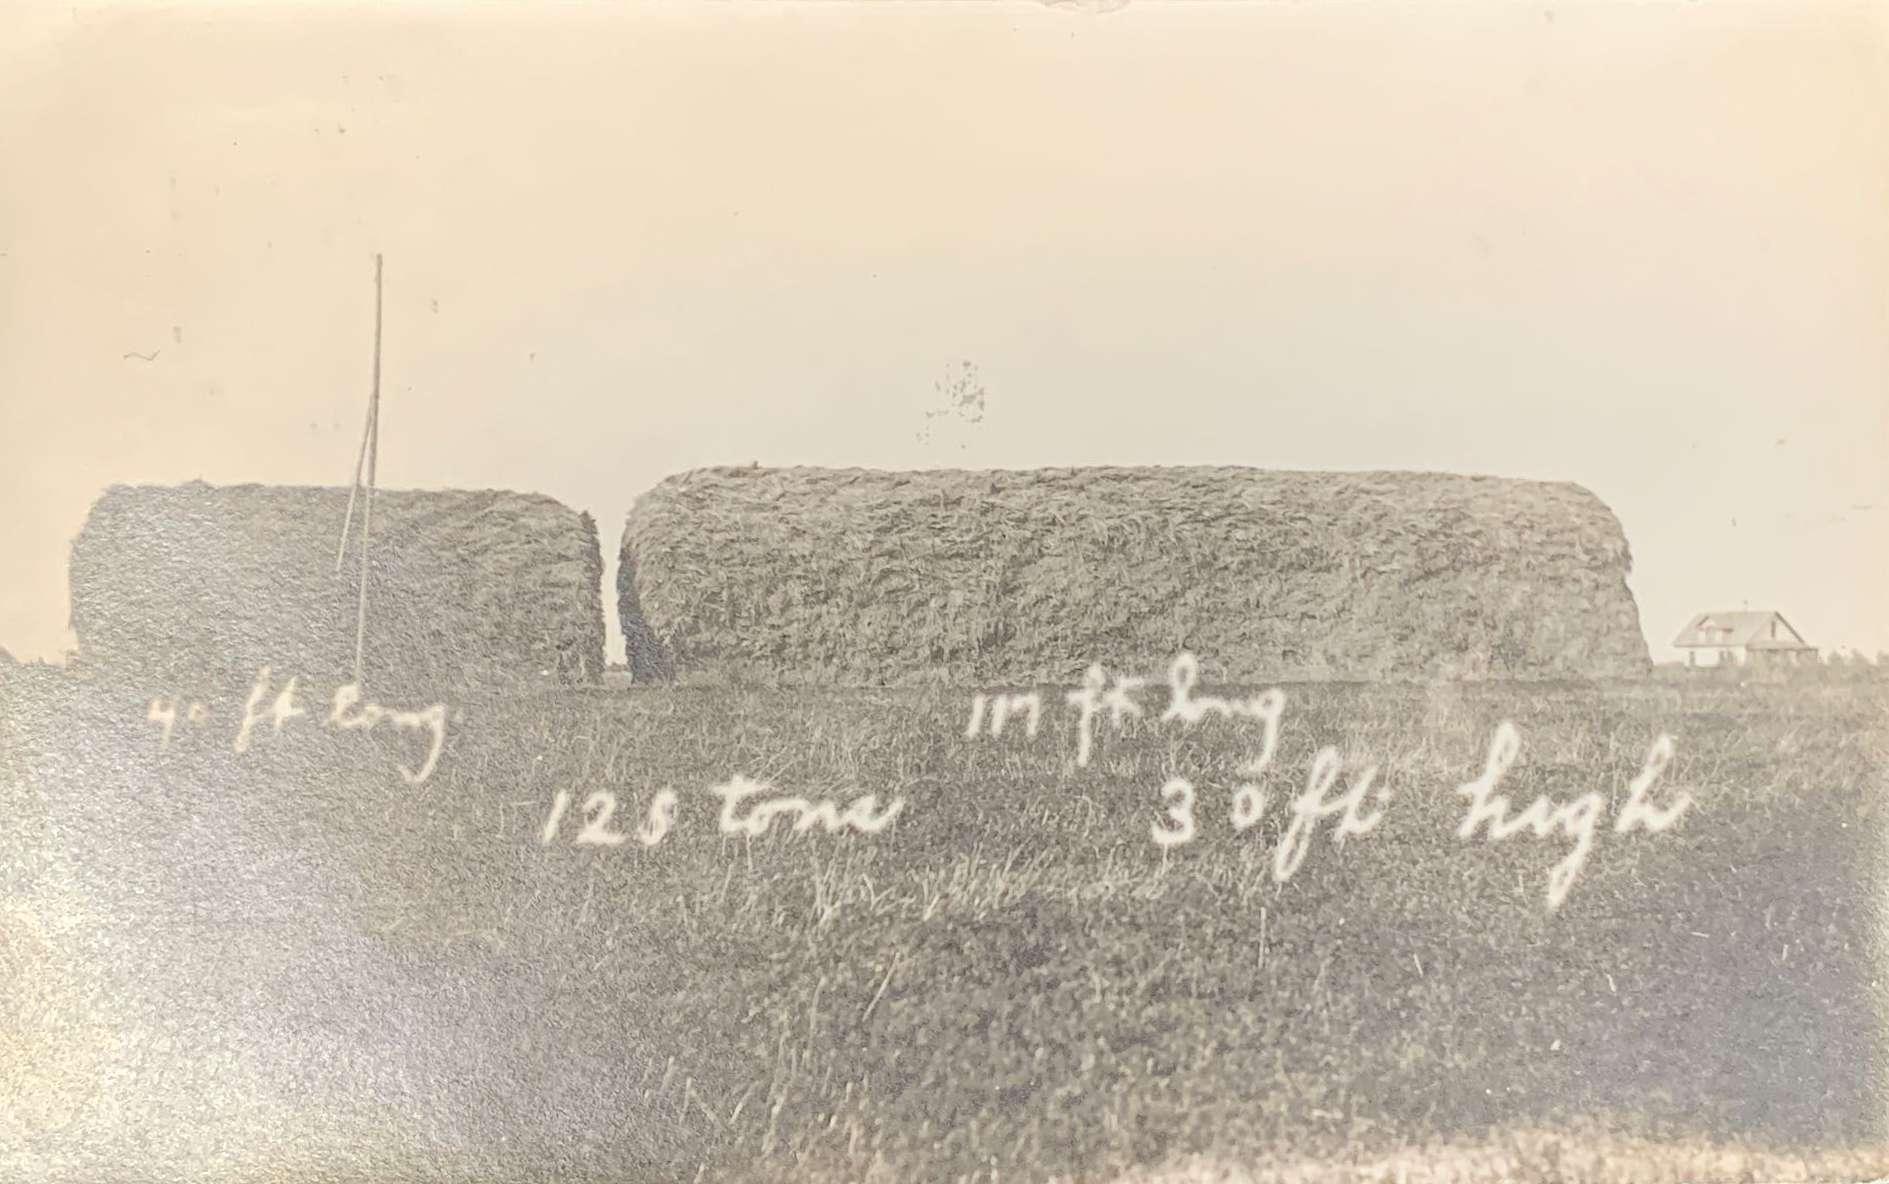 40 ft long.
117 ft long
128 tons
30 ft high